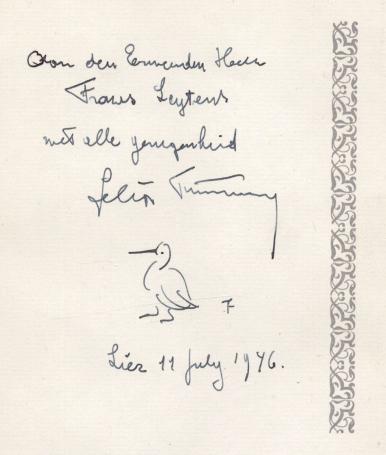 Aan den Eerweerden Heer
Frans Leytens
met alle genegenheid
Felix Timmermans
F
Lier 11 July 1946.